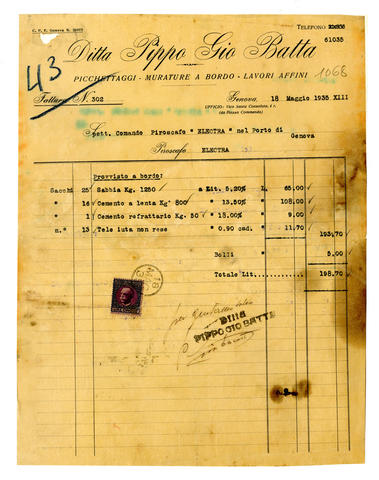 C. P. E. Genova N.
TELEFONO
61035
Ditta Pippo Gio Batta
43
PICCHETTAGGI - MURATURE A BORDO - LAVORI AFFINI
1068
Fattura N. 302
Genova, 18 Maggio 1935 XIII
UFFICIO: Vico
(da Piazza Commenda)
Spett. Comando Piroscafo " ELECTRA " nel Porto di
Genova
Piroscafo ELECTRA
Provvisto a bordo:
Sacchi 25 Sabbia Kg. 1250 a Lit. 5,20% L. 65.00
" 16 Cemento a lenta Kg. 800 " 13,50% " 108.00
" 1 Cemento refrattario Kg. 50 " 18.00% " 9.00
n.° 13 Tele iuta non rese " 0.90 cad. " 11.70
193.70
Bolli 5.00
Totale Lit. 198.70
Ditta
PIPPO GIO BATTA